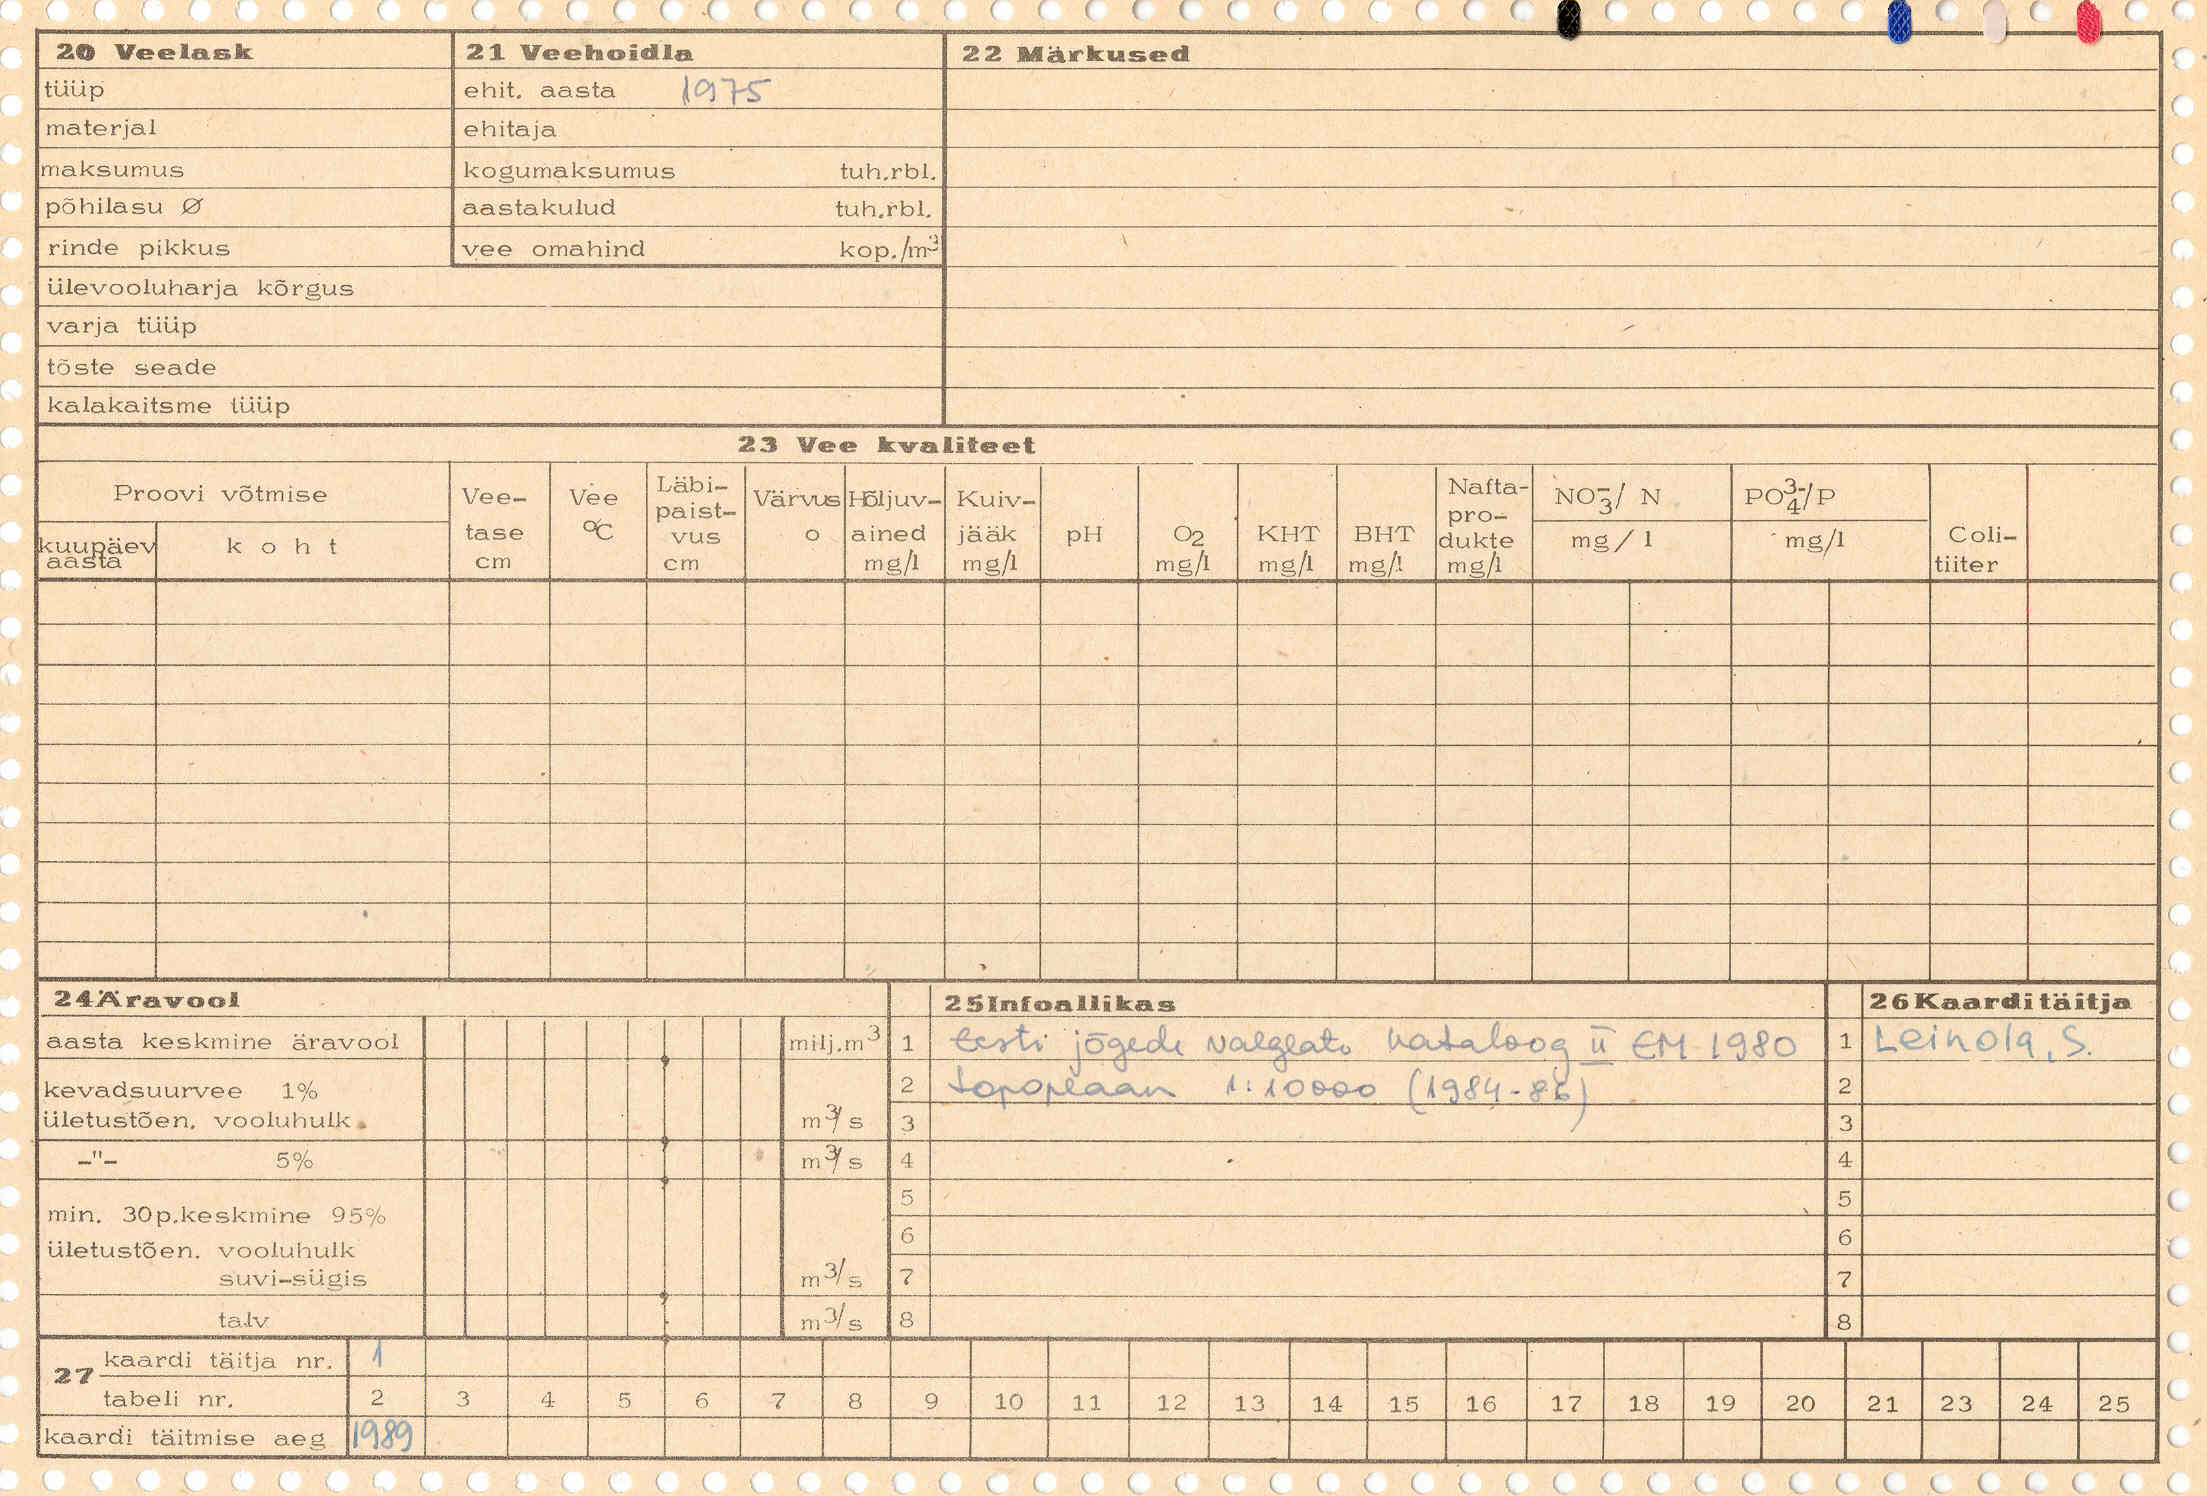 20 Veelask
tüüp
materjal
maksumus
põhilasu Ø
rinde pikkus
ülevooluharja kõrgus
varja tüüp
tõste seade
kalakaitsme tüüp
21 Veehoidla
ehit. aasta 1975
ehitaja
kogumaksumus tuh.rbl.
aastakulud tuh.rbl.
vee omahind kop./m³
22 Märkused
23 Vee kvaliteet
Proovi võtmise
kuupäev aasta
koht
Vee-tase cm
Vee °C
Läbi-paist-vus cm
Värvus o
Hõljuv-ained mg/l
Kuiv-jääk mg/l
pH
O₂ mg/l
KHT mg/l
BHT mg/l
Nafta-pro-dukte mg/l
NO₃⁻/ N mg/l
PO₄³⁻/P mg/l
Coli-tiiter
24 Äravool
aasta keskmine äravool milj.m³
kevadsuurvee 1%
ületustõen. vooluhulk m³/s
-"- 5% m³/s
min. 30p.keskmine 95%
ületustõen. vooluhulk
suvi-sügis m³/s
talv m³/s
25 Infoallikas
1 Eesti jõgede valglate kataloog II EM 1980
2 topoplaan 1:10000 (1984-86)
3
4
5
6
7
8
26 Kaardi täitja
1 Leinola, S.
2
3
4
5
6
7
8
27 kaardi täitja nr. 1
tabeli nr. 2 3 4 5 6 7 8 9 10 11 12 13 14 15 16 17 18 19 20 21 23 24 25
kaardi täitmise aeg 1989